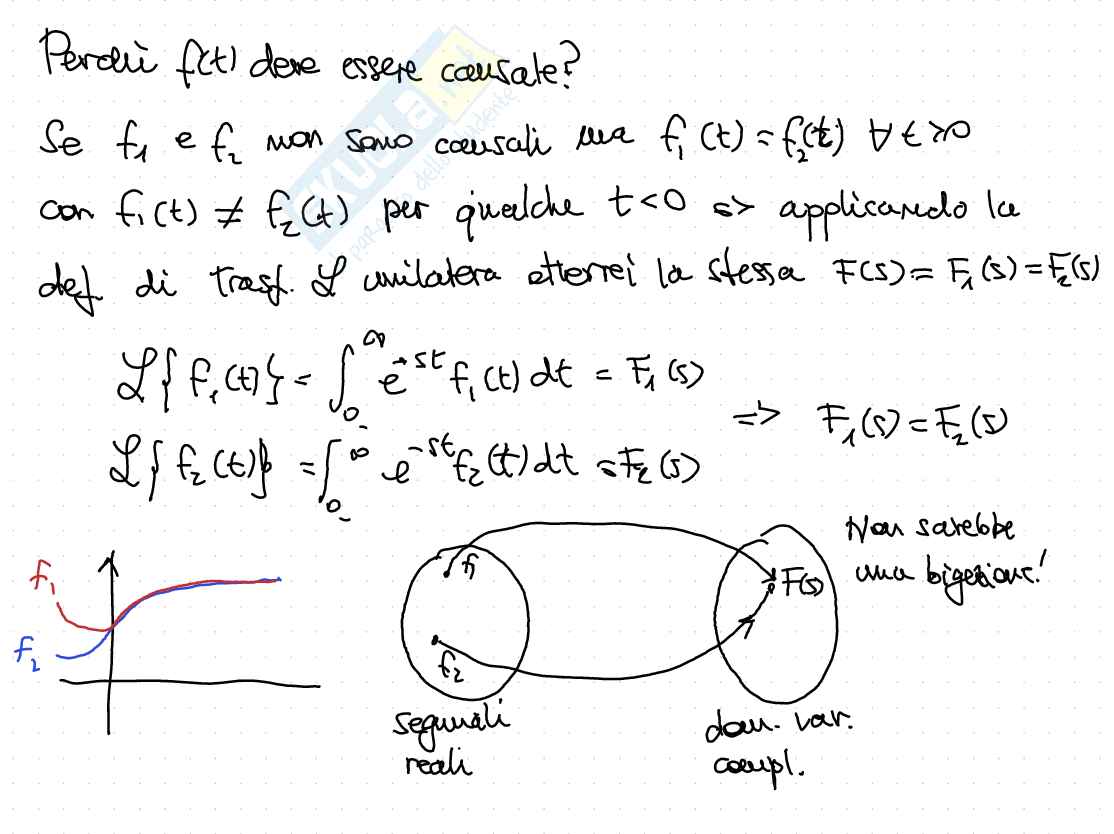 Perché f(t) deve essere causale?
Se f₁ e f₂ non sono causali ma f₁(t) = f₂(t) ∀ t ≥ 0
con f₁(t) ≠ f₂(t) per qualche t < 0 => applicando la
def. di trasf. ℒ unilatera otterrei la stessa F(s) = F₁(s) = F₂(s)
ℒ{f₁(t)} = ∫₀₋^∞ e^-st f₁(t) dt = F₁(s)
=> F₁(s) = F₂(s)
ℒ{f₂(t)} = ∫₀₋^∞ e^-st f₂(t) dt = F₂(s)
Non sarebbe
una bigezione!
f₁
f₂
f₁
f₂
F(s)
segnali
reali
dom. var.
compl.
SKUOLA.net